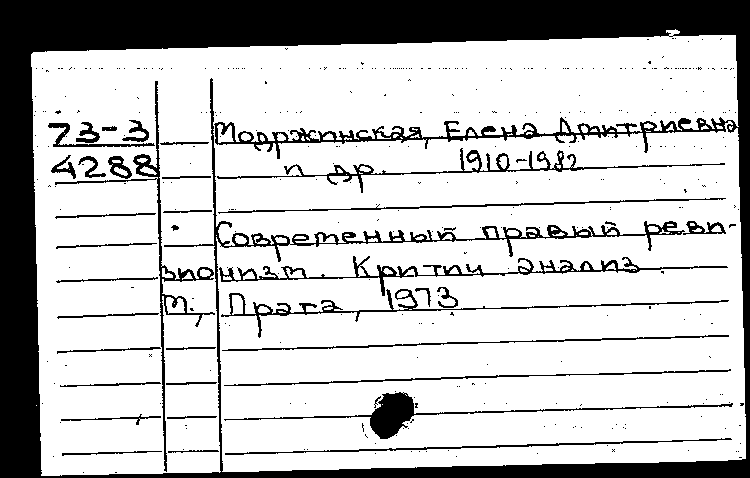 73-3 Модржинская, Елена Дмитриевна
4288 и др. 1910-1982
Современный правый реви-
зионизм. Критич анализ.
М., Прага, 1973